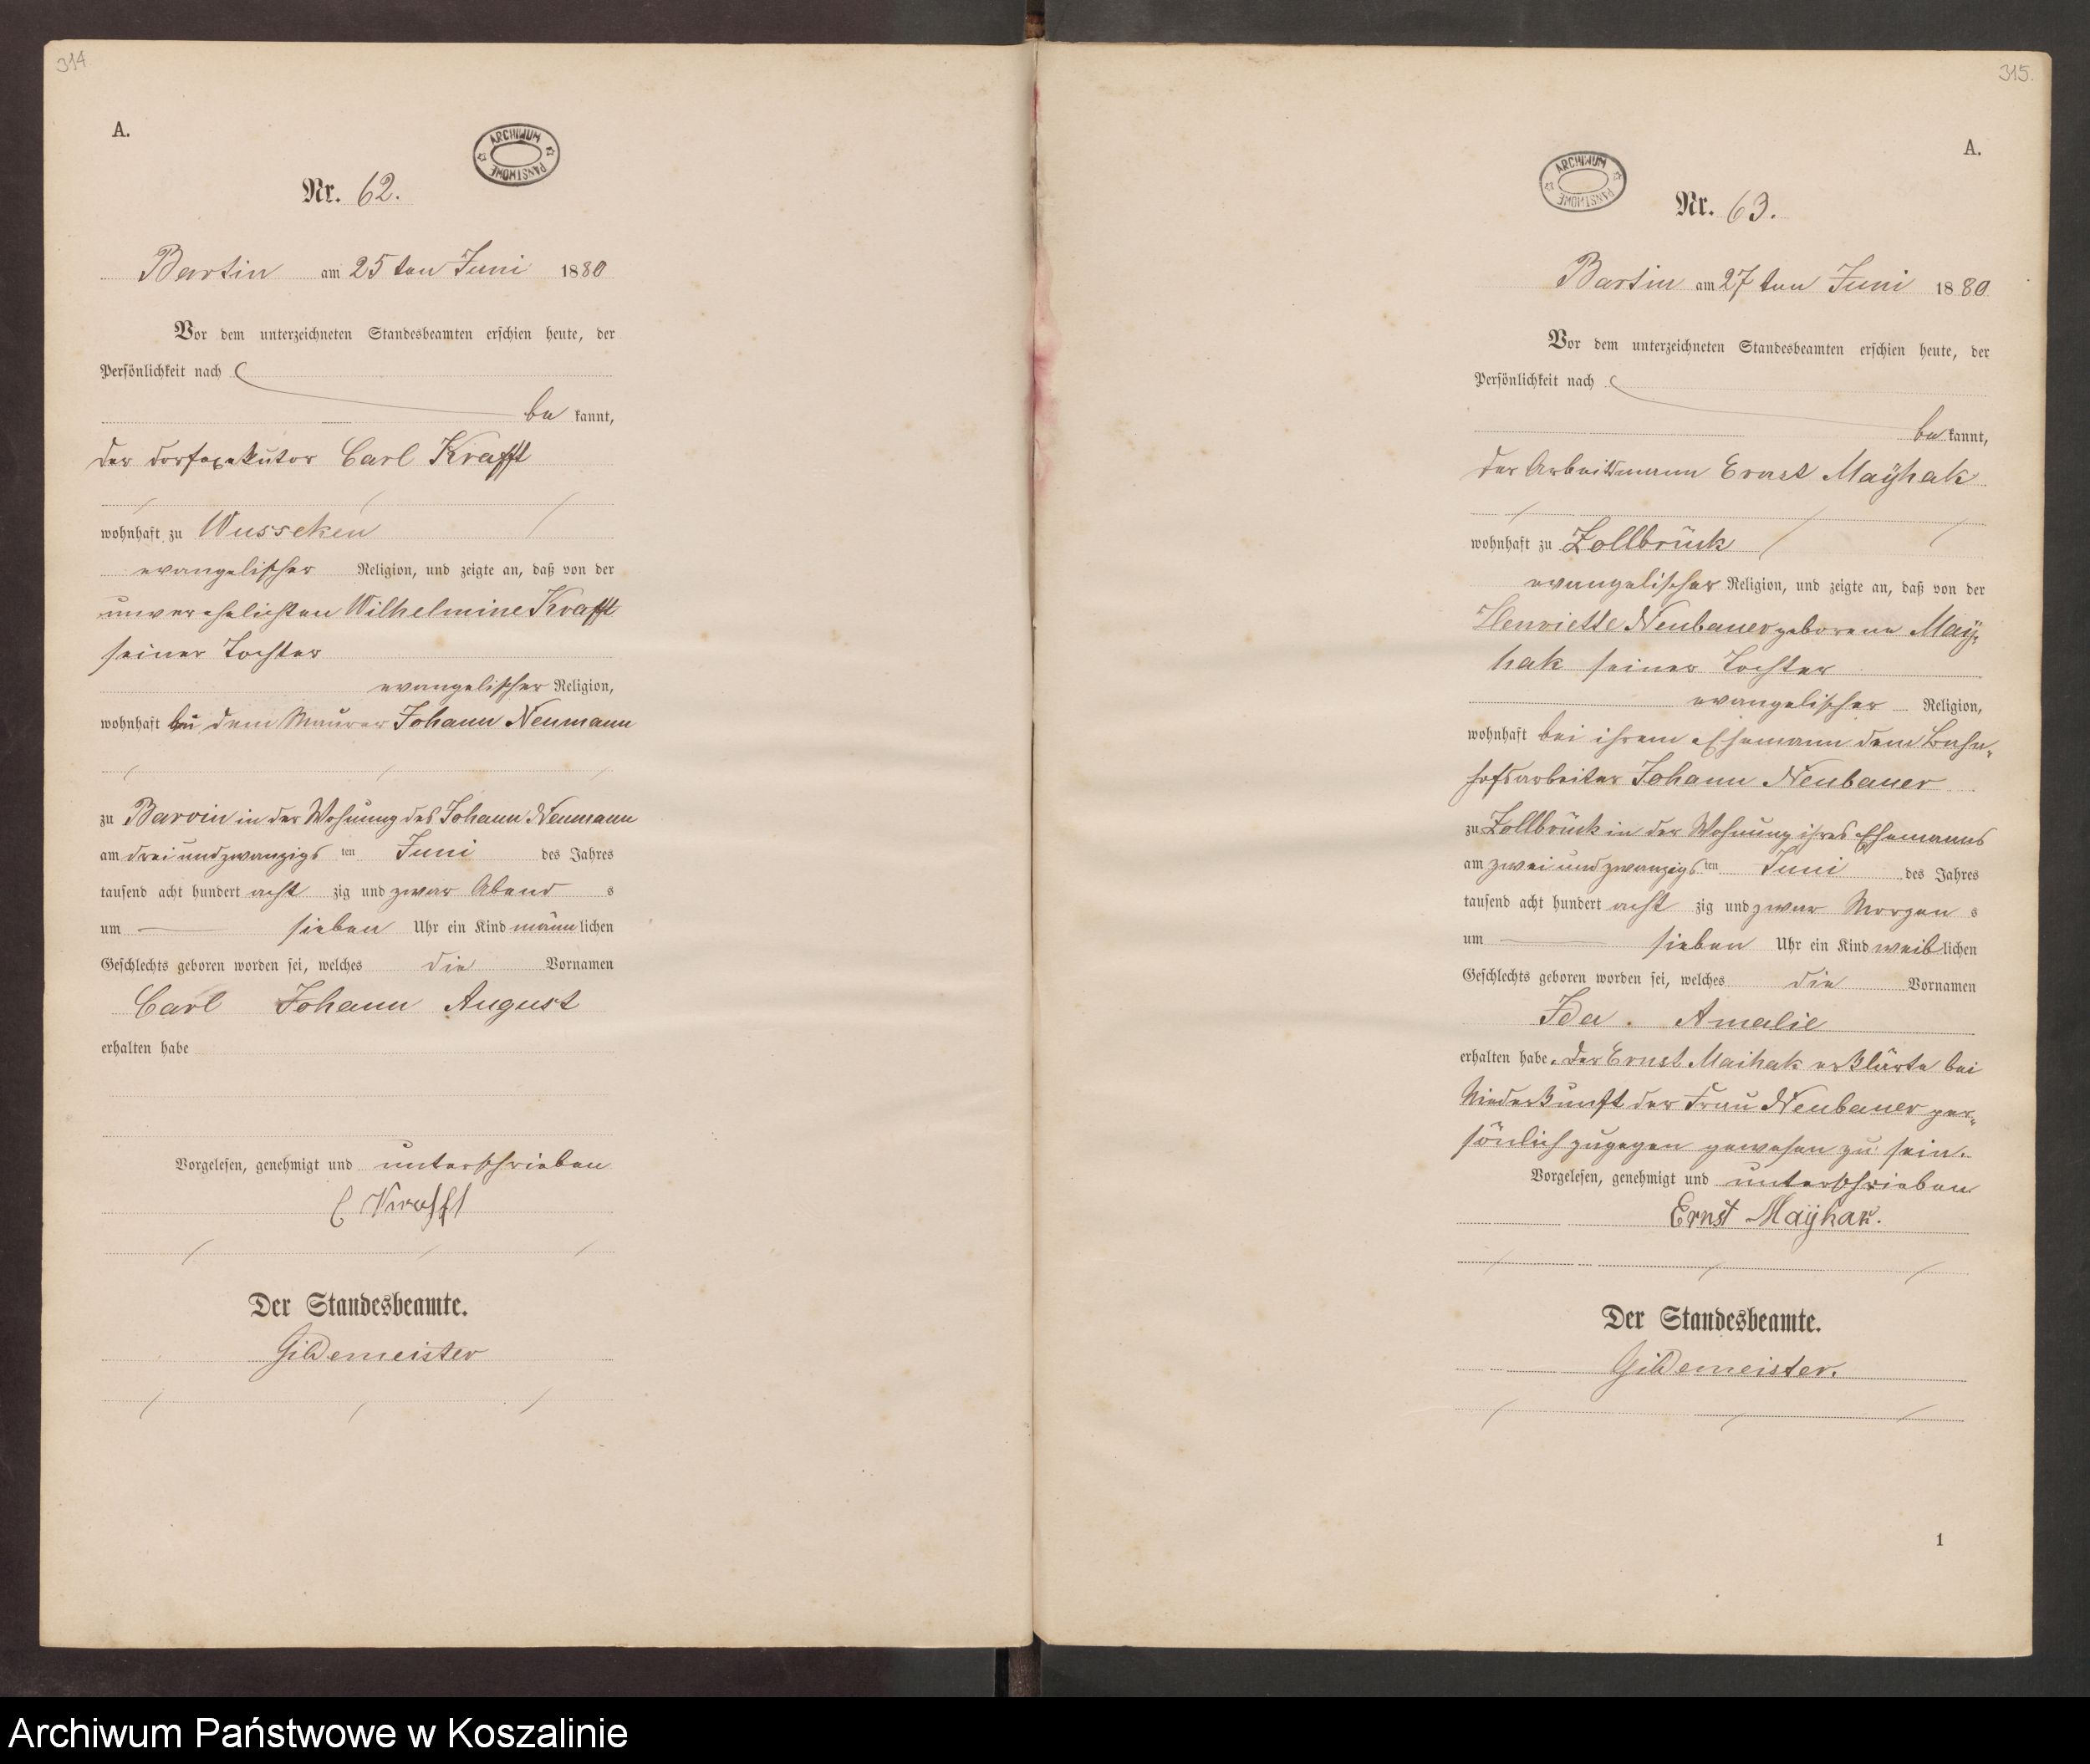 314.
A.
ARCHIWUM PAŃSTWOWE
Nr. 62.
Bartin am 25 ten Juni 1880
Vor dem unterzeichneten Standesbeamten erschien heute, der
Persönlichkeit nach
be kannt,
der Dorfexekutor Carl Krafft
wohnhaft zu Wusseken
evangelischer Religion, und zeigte an, daß von der
unverehelichten Wilhelmine Krafft
seiner Tochter
evangelischer Religion,
wohnhaft bei dem Maurer Johann Neumann
zu Barvin in der Wohnung des Johann Neumann
am drei und zwanzigs ten Juni des Jahres
tausend acht hundert acht zig und zwar Abend s
um sieben Uhr ein Kind männ lichen
Geschlechts geboren worden sei, welches die Vornamen
Carl Johann August
erhalten habe
Vorgelesen, genehmigt und unterschrieben
C Krafft
Der Standesbeamte.
Gildemeister
315.
A.
ARCHIWUM PAŃSTWOWE
Nr. 63.
Bartin am 27 ten Juni 1880
Vor dem unterzeichneten Standesbeamten erschien heute, der
Persönlichkeit nach
be kannt,
der Arbeitsmann Ernst Maÿhak
wohnhaft zu Zollbrück
evangelischer Religion, und zeigte an, daß von der
Henriette Neubauer geborene Maÿ-
hak seiner Tochter
evangelischer Religion,
wohnhaft bei ihrem Ehemann dem Bahn-
hofsarbeiter Johann Neubauer
zu Zollbrück in der Wohnung ihres Ehemanns
am zwei und zwanzigs ten Juni des Jahres
tausend acht hundert acht zig und zwar Morgen s
um sieben Uhr ein Kind weib lichen
Geschlechts geboren worden sei, welches die Vornamen
Ida. Amalie
erhalten habe. Der Ernst Maihak erklärte bei
Niederkunft der Frau Neubauer per-
sönlich zugegen gewesen zu sein.
Vorgelesen, genehmigt und unterschrieben
Ernst Maÿhak.
Der Standesbeamte.
Gildemeister.
1
Archiwum Państwowe w Koszalinie